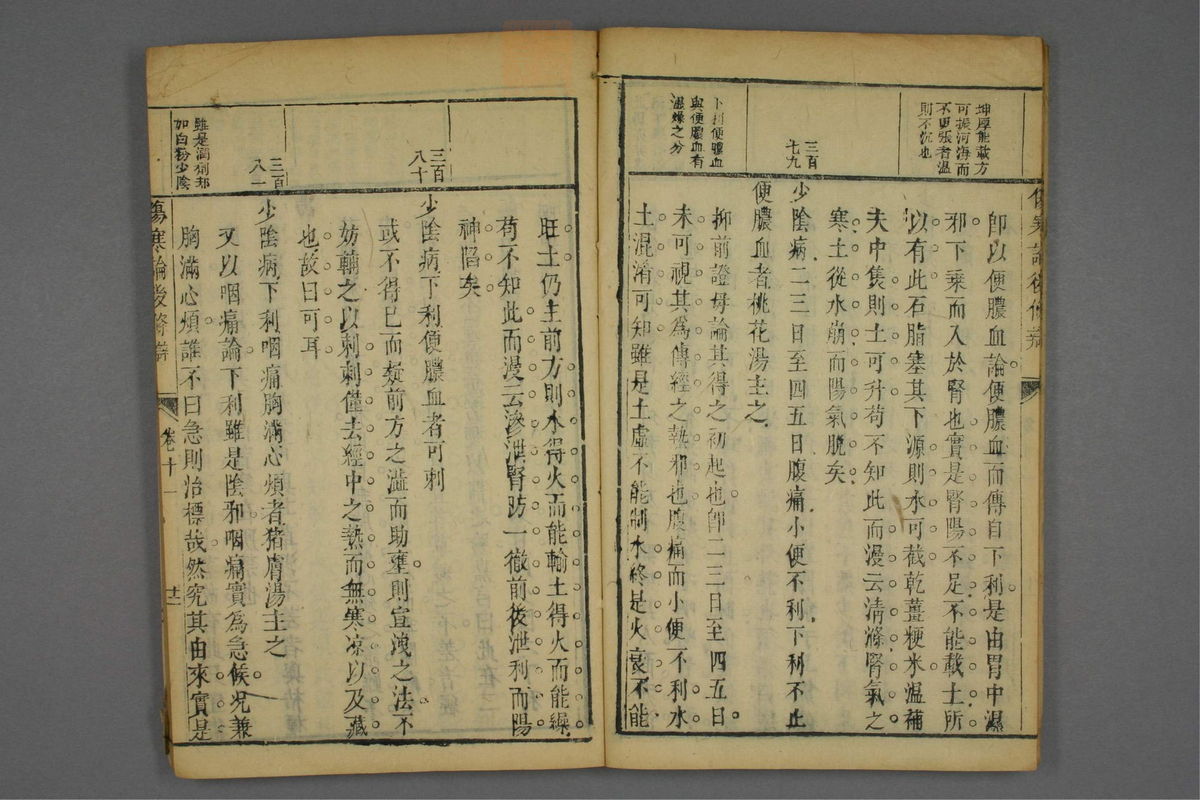 坤厚能載方
可振河海而
不更張者溫
則不沉也
卽以便膿血論便膿血而傳自下利是由胃中濕
邪下乘而入於腎也實是腎陽不足不能載土所
以有此石脂塞其下源則水可截乾薑粳米溫補
夫中焦則土可升苟不知此而漫云清滌腎氣之
寒土從水崩而陽氣脫矣
三百
七九
少陰病二三日至四五日腹痛小便不利下利不止
便膿血者桃花湯主之
下利便膿血
與便膿血有
濕燥之分
抑前證毋論其得之初起也卽二三日至四五日
未可視其爲傳經之熱邪也腹痛而小便不利水
土混淆可知雖是土虛不能制水終是火衰不能
旺土仍主前方則水得火而能輸土得火而能繰
苟不知此而漫云滲泄腎防一徹前後泄利而陽
神陷矣
三百
八十
少陰病下利便膿血者可刺
或不得已而欵前方之澁而助壅則宣洩之法不
妨輔之以刺刺僅去經中之熱而無寒凉以及藏
也故曰可耳
三百
八一
少陰病下利咽痛胸滿心煩者猪膚湯主之
雖是潤劑却
加白粉少陰
又以咽痛論下利雖是陰邪咽痛實爲急候况兼
胸滿心煩誰不曰急則治標哉然究其由來實是
傷寒論後條辯
卷十一